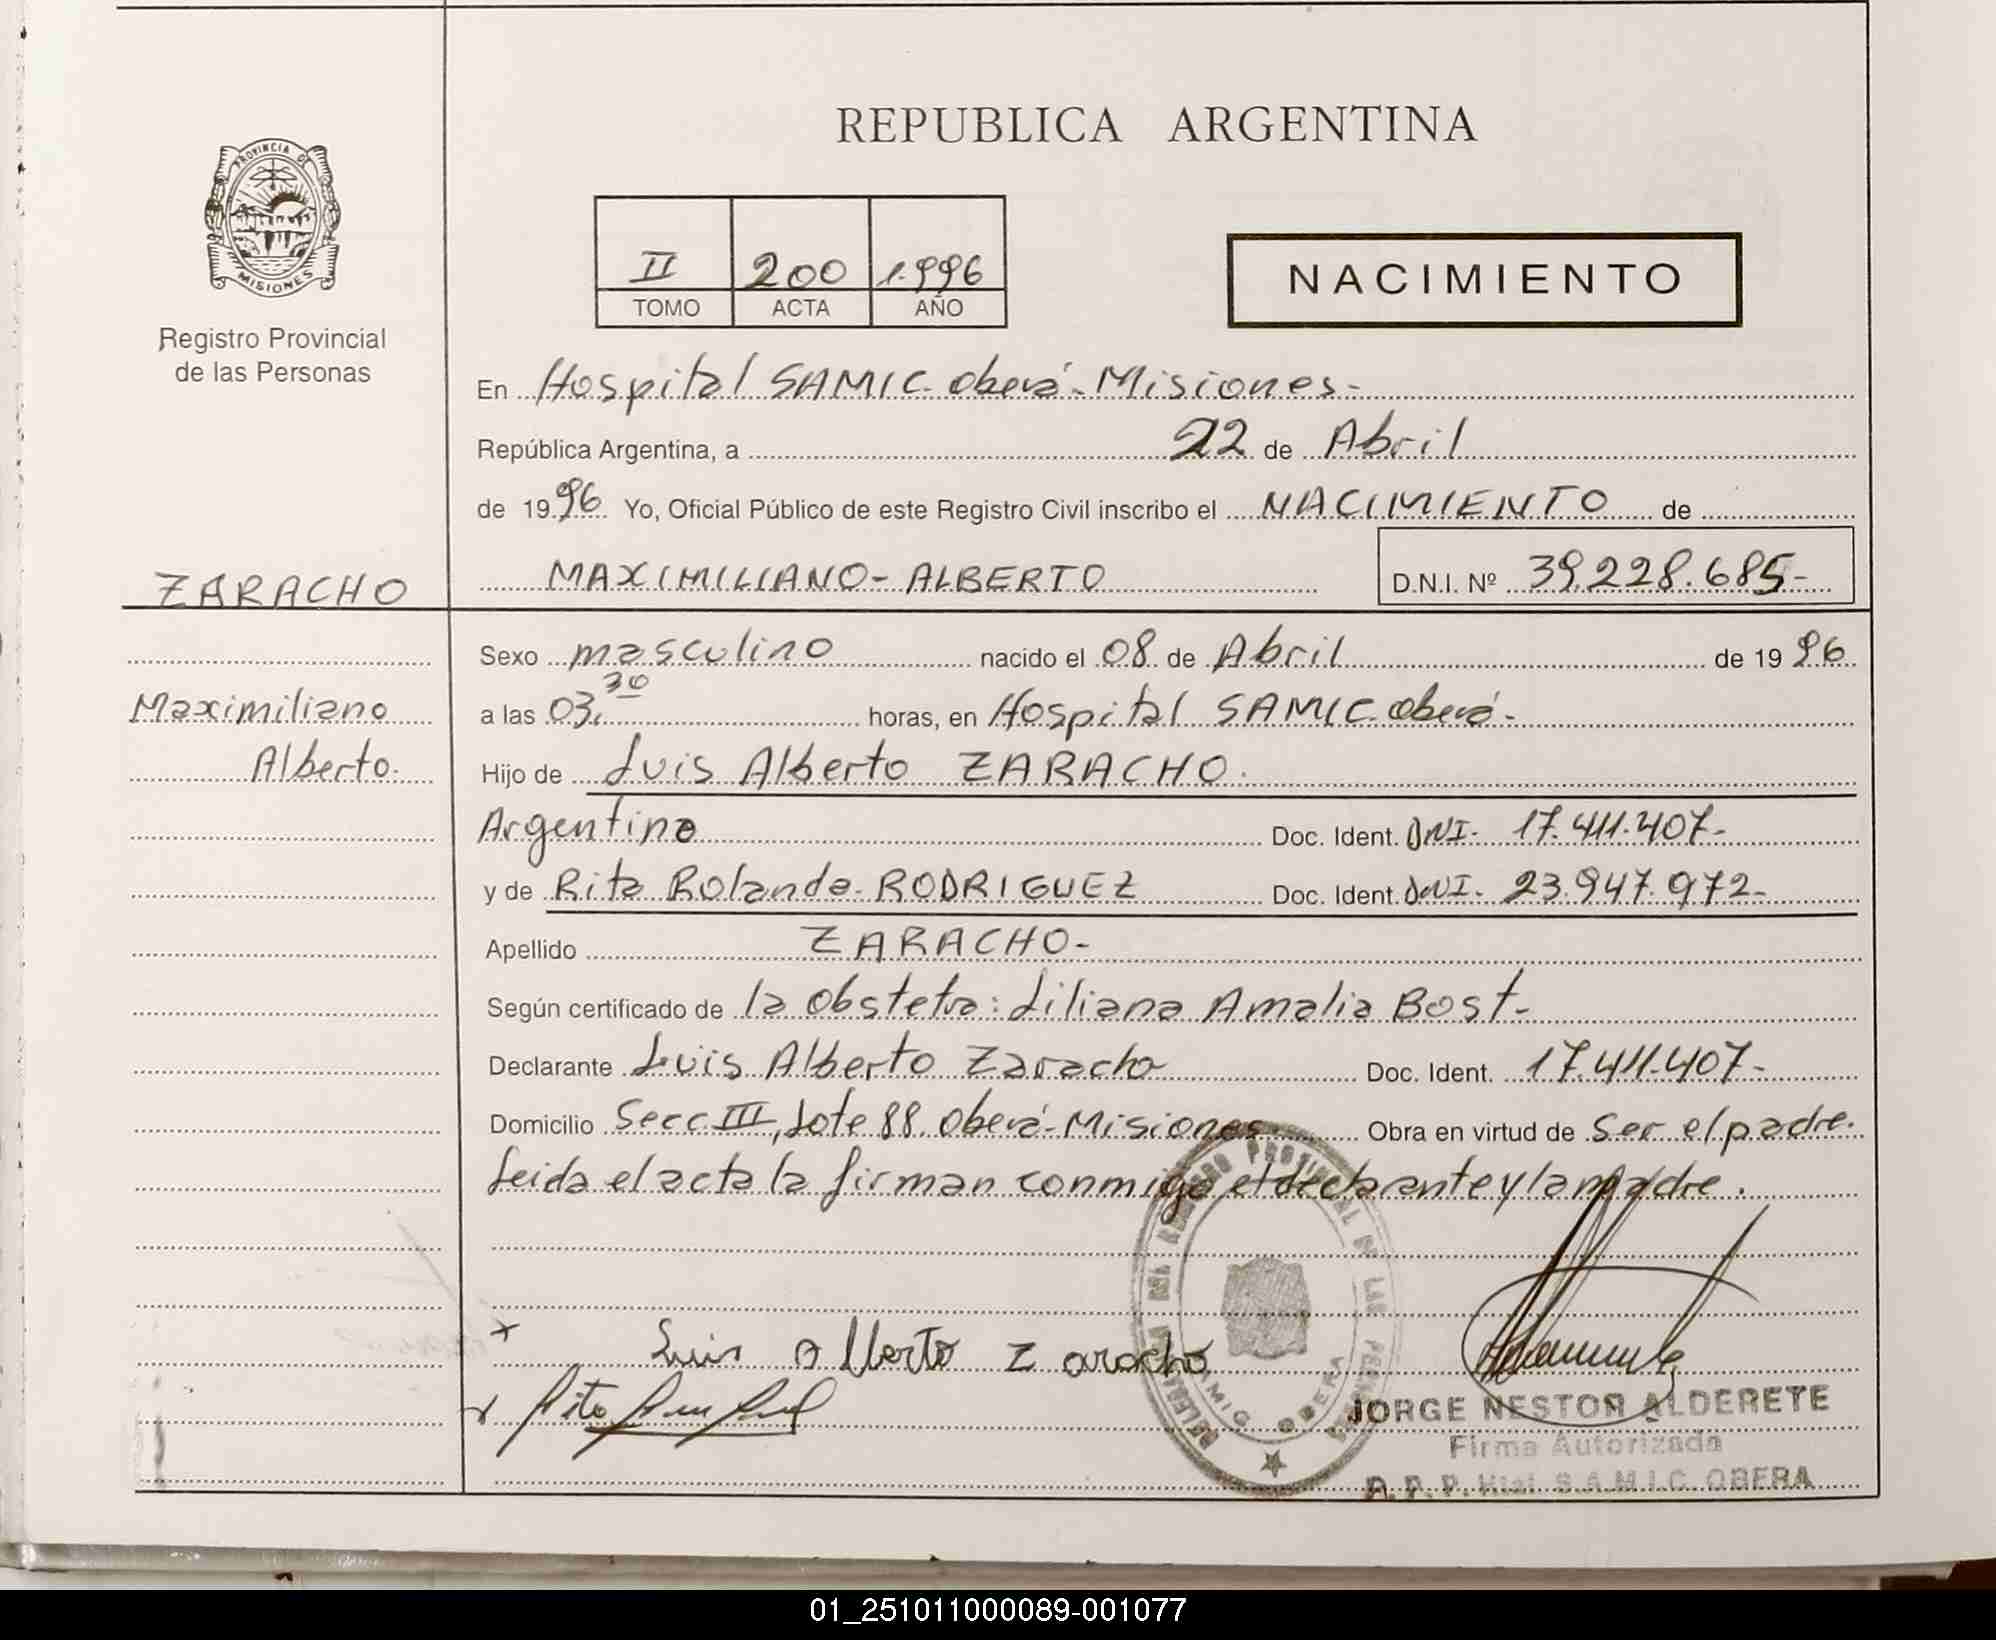 REPUBLICA ARGENTINA
PROVINCIA DE
MISIONES
Registro Provincial
de las Personas
II 200 1.996
TOMO ACTA AÑO
NACIMIENTO
En Hospital SAMIC. Oberá - Misiones -
República Argentina, a 22 de Abril
de 1996 Yo, Oficial Público de este Registro Civil inscribo el NACIMIENTO de
MAXIMILIANO - ALBERTO D.N.I. Nº 39.228.685-
ZARACHO
Maximiliano
Alberto.
Sexo masculino nacido el 08 de Abril de 1996
a las 03,30 horas, en Hospital SAMIC. Oberá -
Hijo de Luis Alberto ZARACHO.
Argentino Doc. Ident. DNI - 17.411.407-
y de Rita Rolanda - RODRIGUEZ Doc. Ident. DNI - 23.947.972-
Apellido ZARACHO-
Según certificado de la obstetra: Liliana Amalia Bost-
Declarante Luis Alberto Zaracho Doc. Ident. 17.411.407-
Domicilio Secc. III, Lote 88. Oberá - Misiones Obra en virtud de ser el padre.
Leida el acta la firman conmigo el declarante y la madre.
Luis Alberto Zaracho
Rita
JORGE NESTOR ALDERETE
Firma Autorizada
S.A.M.I.C. OBERA
01_251011000089-001077